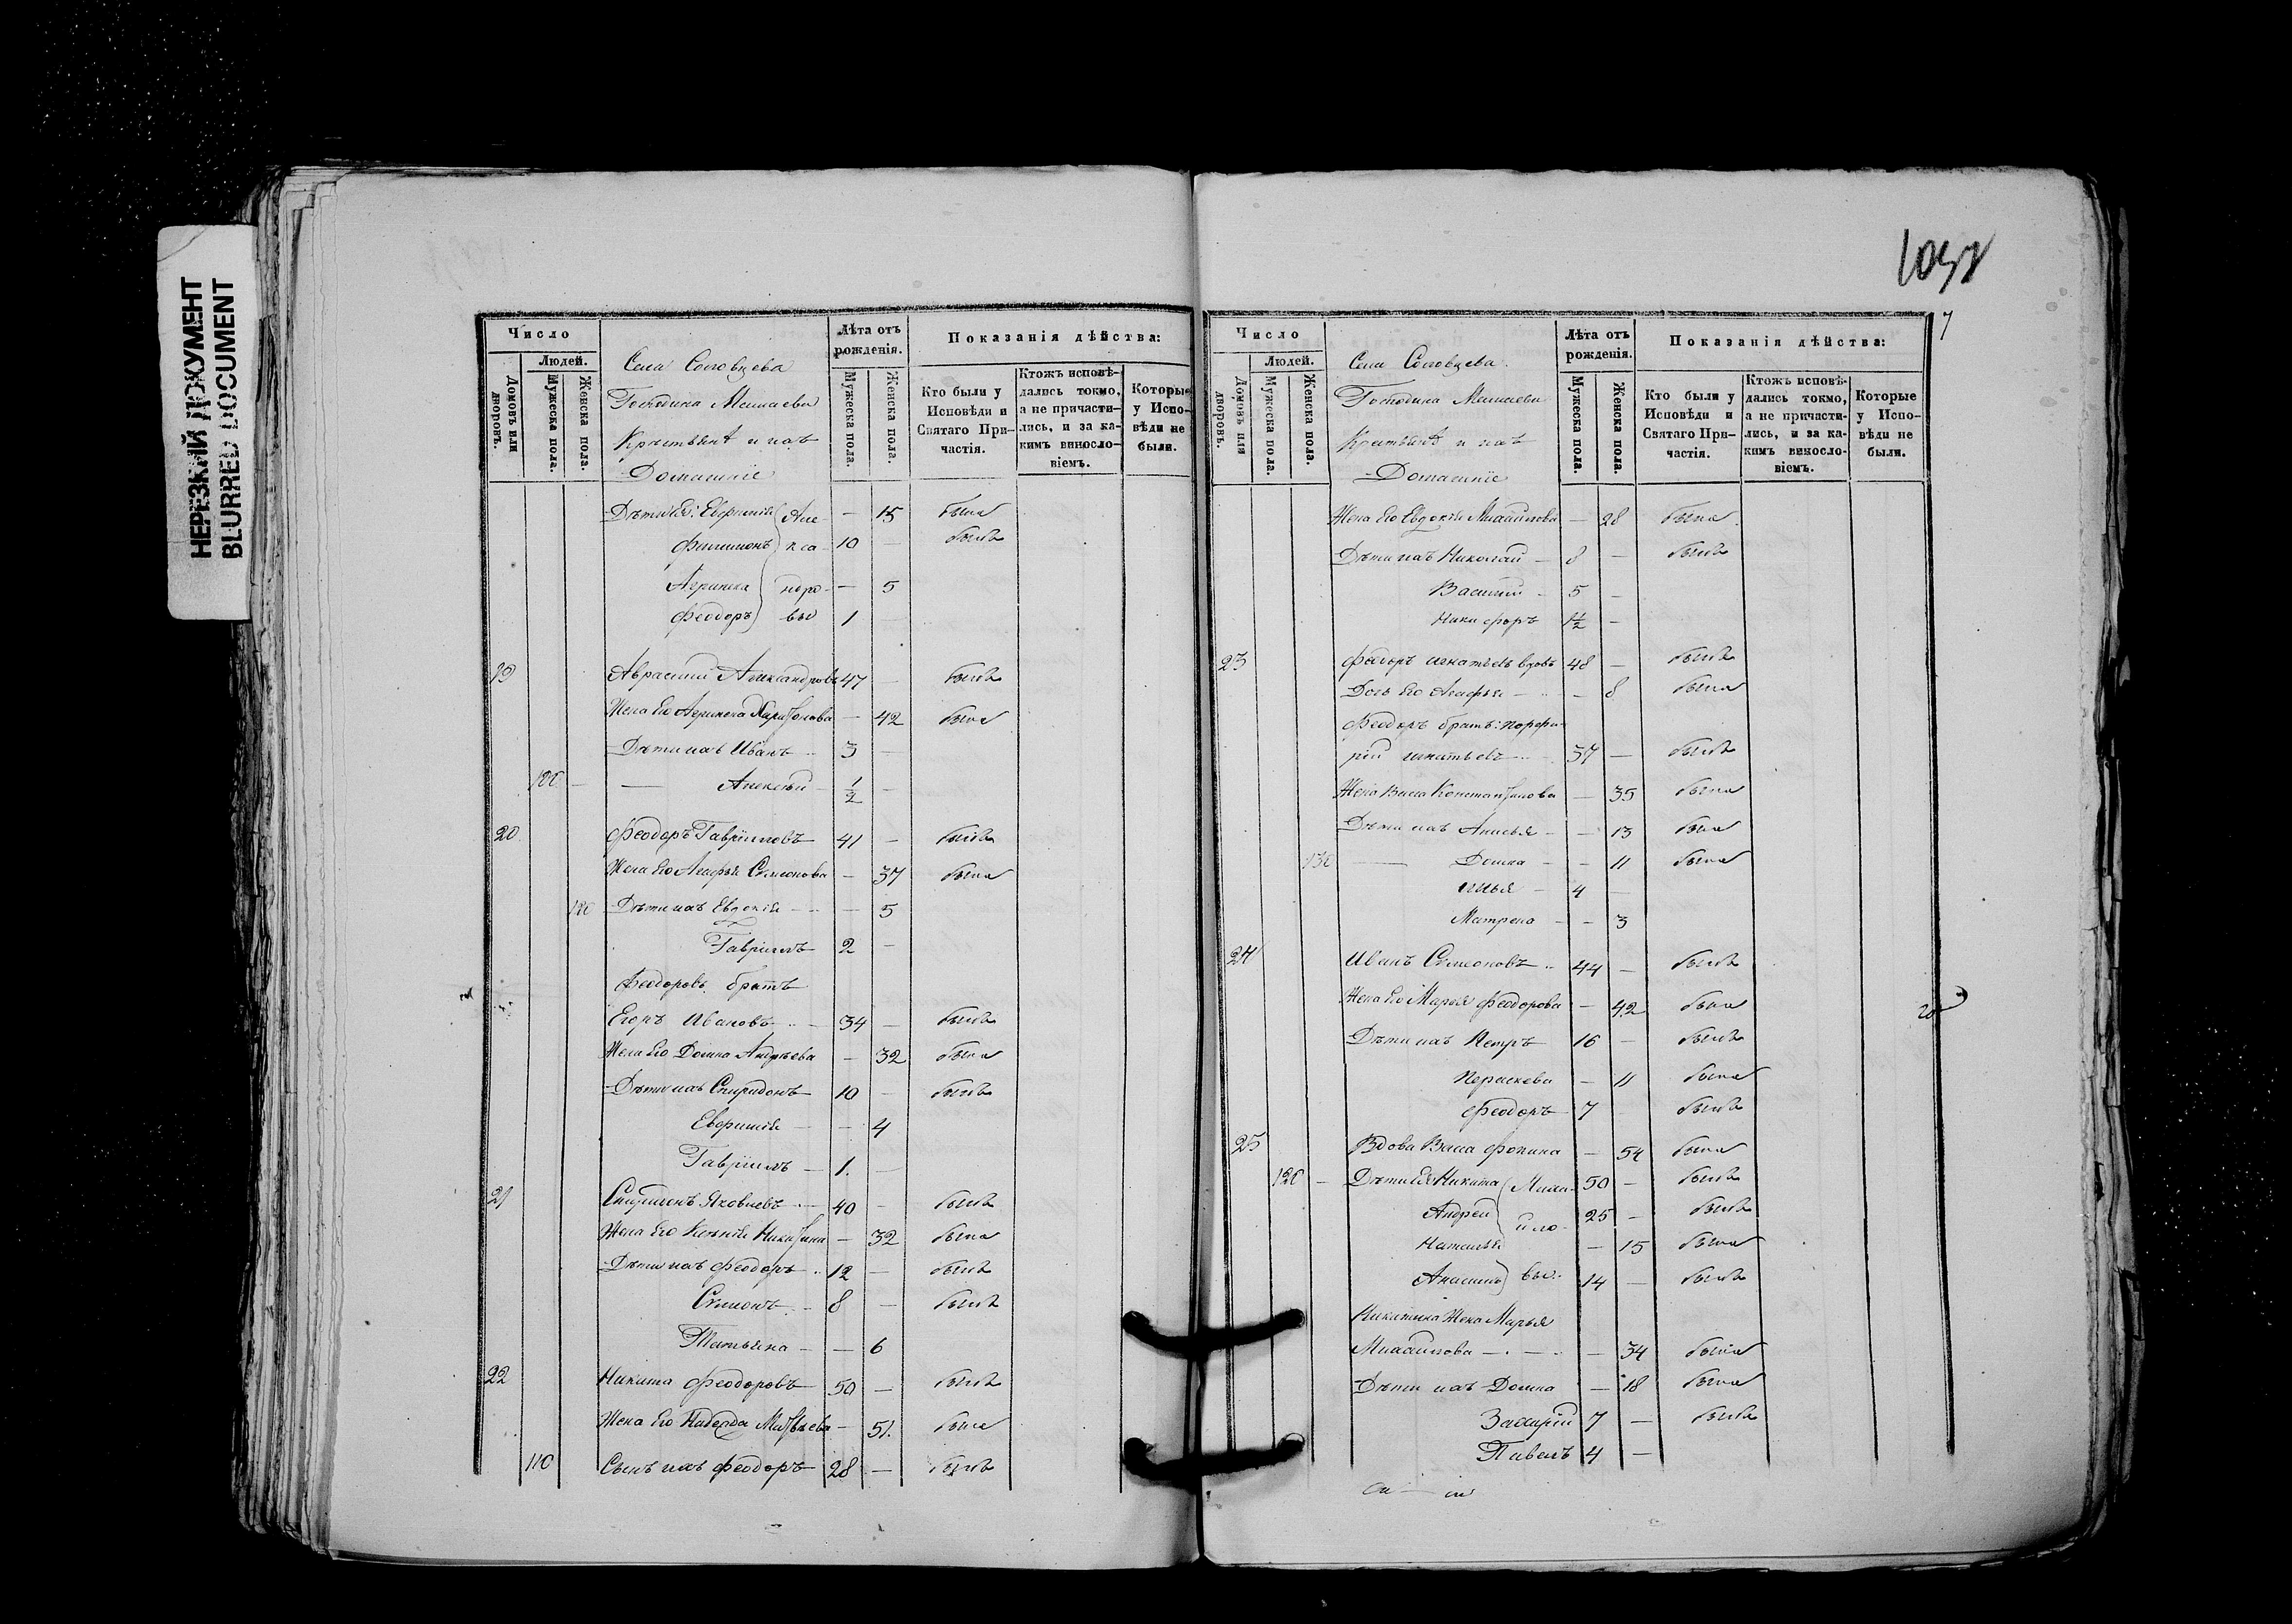 НЕРЕЗКИЙ ДОКУМЕНТ
BLURRED DOCUMENT
Число
Людей.
Домовъ или дворовъ.
Мужеска пола.
Женска пола.
Села Соловцева
Господина
Крестьянѣ и ихъ
Домашніе
Лѣта отъ рожденія.
Мужеска пола.
Женска пола.
Показанія дѣйства:
Кто были у Исповѣди и Святаго При-частія.
Ктожъ исповѣ-дались токмо, а не причасти-лись, и за ка-кимъ винсло-віемъ.
Которые у Испо-вѣди не были.
Дѣти Ея: Евфимія Але — 15 была
Филимонъ кса 10 — былъ
Агрипена ндро — 5
Феодоръ вы 1 —
19 Аврамій Александровъ 47 — былъ
Жена Его Агрипена Харитонова — 42 была
Дѣти ихъ Иванъ 3 —
100 — Алексѣй 1/2 —
20 Феодоръ Гавріиловъ 41 — былъ
Жена Его Агафья Симеонова — 37 была
120 Дѣти ихъ Евдокія — 5
Гавріилъ 2 —
Феодоровъ братъ
Егоръ Ивановъ 34 — былъ
Жена Его Домна Андрѣева — 32 была
Дѣти ихъ Спиридонъ 10 — былъ
Евфимія — 4
Гавріилъ 1. —
21 Яковлевъ 40 — былъ
Жена Его Ксенія Никитина — 32 была
Дѣти ихъ Феодоръ 12 — былъ
Симонъ 8 — былъ
Татьяна — 6
22 Никита Феодоровъ 50 — былъ
Жена Его Надежда Матвѣева — 51. была
110 Сынъ ихъ Феодоръ 28 — былъ
7
Число
Людей.
Домовъ или дворовъ.
Мужеска пола.
Женска пола.
Села Соловцева
Господина
Крестьянѣ и ихъ
Домашніе
Лѣта отъ рожденія.
Мужеска пола.
Женска пола.
Показанія дѣйства:
Кто были у Исповѣди и Святаго При-частія.
Ктожъ исповѣ-дались токмо, а не причасти-лись, и за ка-кимъ винсло-віемъ.
Которые у Испо-вѣди не были.
Жена Его Евдокія Михайлова — 28 была
Дѣти ихъ Николай 8 — былъ
Василій 5 —
Никифоръ 1 1/2 —
23 Феодоръ Игнатьевъ вдовъ 48 — былъ
Дочь Его Агафья — 8 была
Феодоръ братъ: Порфи-
рій Игнатьевъ 37 — былъ
Жена Васса Константинова — 35 была
Дѣти ихъ Анисья — 13 была
130 — Домна — 11 была
Илья 4 —
Матрена — 3
24 Иванъ Симеоновъ 44 — былъ
Жена Его Марья Феодорова — 42 была
Дѣти ихъ Петръ 16 — былъ
Параскева — 11 была
Феодоръ 7 былъ
25 Вдова Васса Фокина — 54 была
120 — Дѣти Ея Никита Миха- 50 — былъ
Андрей йло- 25 — былъ
Наталья — 15 была
вы 14 — былъ
Никитина Жена Марья
Михайлова — 34 была
Дѣти ихъ Домна — 18 была
Захарій 7 — былъ
Павелъ 4 —